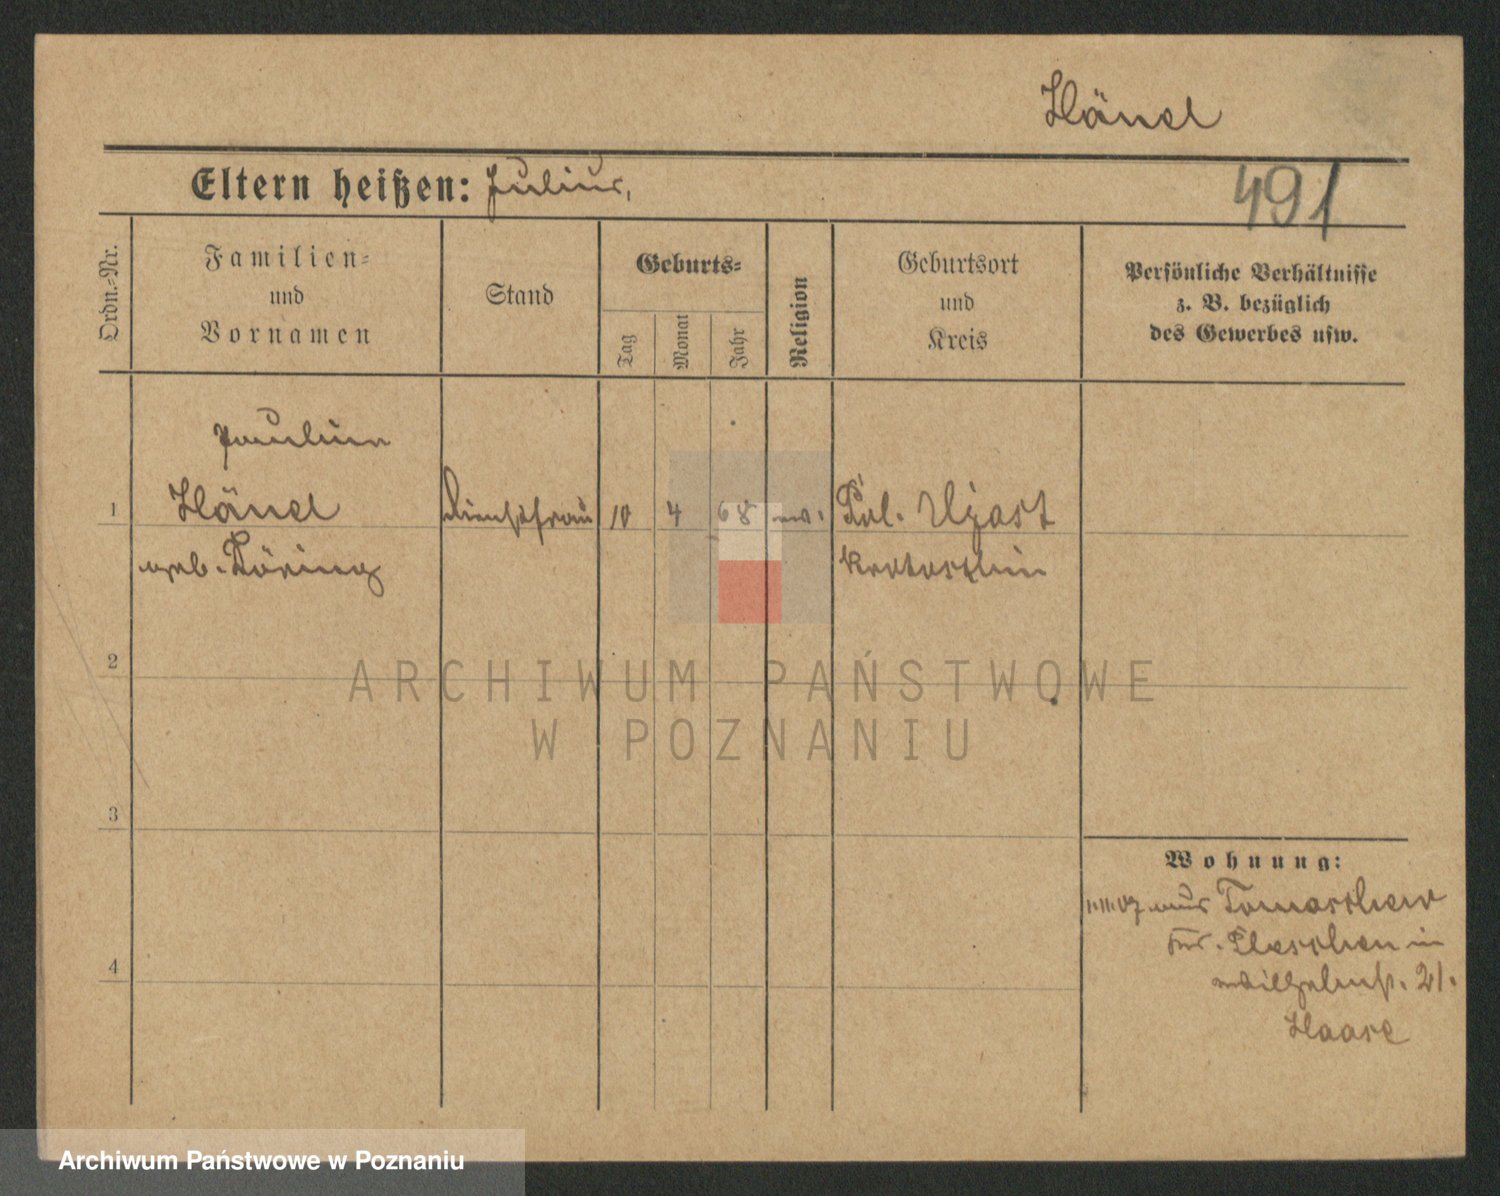 Hänel
Eltern heißen: Julius,
491
Ordn.-Nr.
Familien-
und
Vornamen
Stand
Geburts-
Tag
Monat
Jahr
Religion
Geburtsort
und
Kreis
Persönliche Verhältnisse
z. B. bezüglich
des Gewerbes usw.
Pauline
1 Hänel Dienstfrau 10 4 68 ev. Pol. Ujast
geb. Döring Krotoschin
2
3
4
Wohnung:
1.11.07 aus Tomaschew
Krs. Pleschen in
Wilhelmst. 21.
Haase
ARCHIWUM PAŃSTWOWE
W POZNANIU
Archiwum Państwowe w Poznaniu